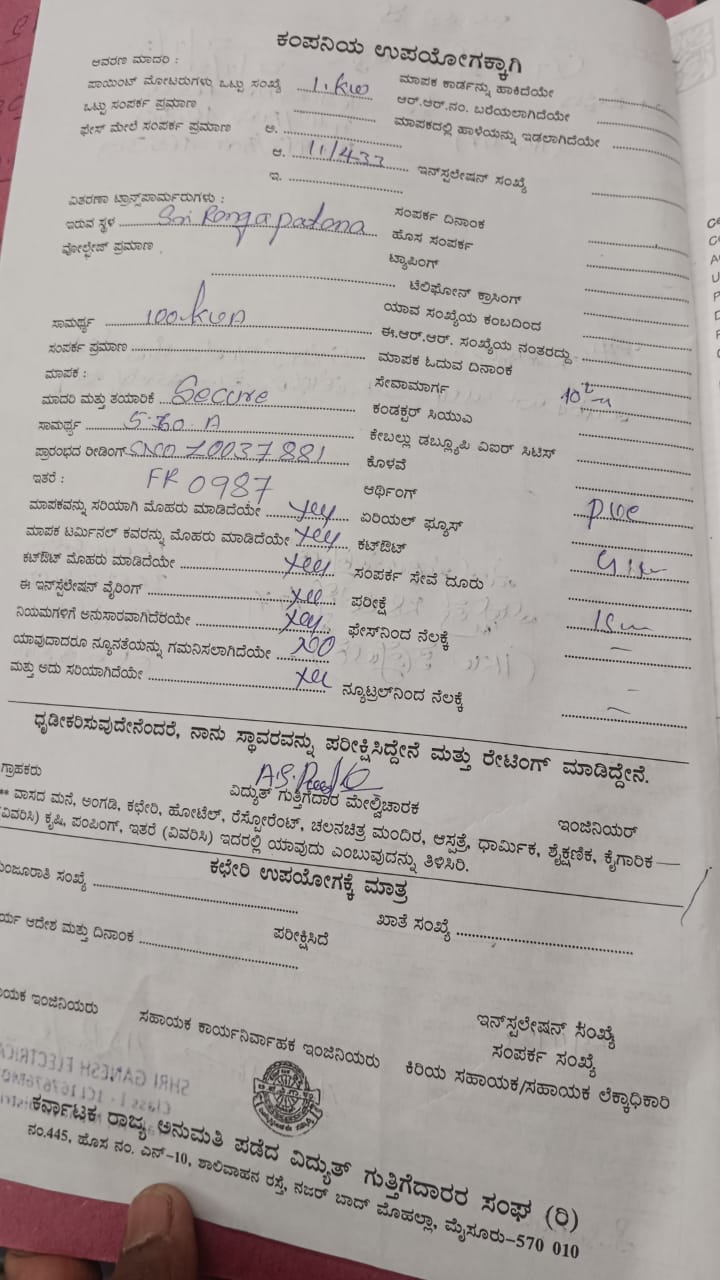 ಕಂಪನಿಯ ಉಪಯೋಗಕ್ಕಾಗಿ
ಆವರಣ ಮಾದರಿ :
ಪಾಯಿಂಟ್ ಮೋಟರುಗಳು ಒಟ್ಟು ಸಂಖ್ಯೆ 1.KW ಮಾಪಕ ಕಾರ್ಡನ್ನು ಹಾಕಿದೆಯೇ
ಒಟ್ಟು ಸಂಪರ್ಕ ಪ್ರಮಾಣ ಆರ್.ಆರ್.ನಂ. ಬರೆಯಲಾಗಿದೆಯೇ
ಫೇಸ್ ಮೇಲೆ ಸಂಪರ್ಕ ಪ್ರಮಾಣ ಅ. ಮಾಪಕದಲ್ಲಿ ಹಾಳೆಯನ್ನು ಇಡಲಾಗಿದೆಯೇ
ಆ. 11/433 ಇನ್‌ಸ್ಪಲೇಷನ್ ಸಂಖ್ಯೆ
ಇ.
ವಿತರಣಾ ಟ್ರಾನ್ಸ್‌ಪಾರ್ಮರುಗಳು : ಸಂಪರ್ಕ ದಿನಾಂಕ
ಇರುವ ಸ್ಥಳ Sri Rangapatana ಹೊಸ ಸಂಪರ್ಕ
ವೋಲ್ಟೇಜ್ ಪ್ರಮಾಣ ಟ್ಯಾಪಿಂಗ್
ಟೆಲಿಫೋನ್ ಕ್ರಾಸಿಂಗ್
ಯಾವ ಸಂಖ್ಯೆಯ ಕಂಬದಿಂದ
ಸಾಮರ್ಥ್ಯ 100 KVA ಈ.ಆರ್.ಆರ್. ಸಂಖ್ಯೆಯ ನಂತರದ್ದು
ಸಂಪರ್ಕ ಪ್ರಮಾಣ ಮಾಪಕ ಓದುವ ದಿನಾಂಕ
ಮಾಪಕ : ಸೇವಾಮಾರ್ಗ
ಮಾದರಿ ಮತ್ತು ತಯಾರಿಕೆ Secure ಕಂಡಕ್ಟರ್ ಸಿಯುಎ
ಸಾಮರ್ಥ್ಯ 5-30 A ಕೇಬಲ್ಲು ಡಬ್ಲ್ಯೂಪಿ ವಿಐಆರ್ ಸಿಟಿಸ್
ಪ್ರಾರಂಭದ ರೀಡಿಂಗ್ SNO 70037881 ಕೊಳವೆ
ಇತರೆ : FR 0987 ಆರ್ಥಿಂಗ್
ಮಾಪಕವನ್ನು ಸರಿಯಾಗಿ ಮೊಹರು ಮಾಡಿದೆಯೇ yes ಏರಿಯಲ್ ಫ್ಯೂಸ್
ಮಾಪಕ ಟರ್ಮಿನಲ್ ಕವರನ್ನು ಮೊಹರು ಮಾಡಿದೆಯೇ yes ಕಟ್‌ಔಟ್
ಕಟ್‌ಔಟ್ ಮೊಹರು ಮಾಡಿದೆಯೇ yes ಸಂಪರ್ಕ ಸೇವೆ ದೂರು
ಈ ಇನ್‌ಸ್ಪಲೇಷನ್ ವೈರಿಂಗ್ yes ಪರೀಕ್ಷೆ
ನಿಯಮಗಳಿಗೆ ಅನುಸಾರವಾಗಿದೆರಯೇ yes ಫೇಸ್‌ನಿಂದ ನೆಲಕ್ಕೆ
ಯಾವುದಾದರೂ ನ್ಯೂನತೆಯನ್ನು ಗಮನಿಸಲಾಗಿದೆಯೇ NO
ಮತ್ತು ಅದು ಸರಿಯಾಗಿದೆಯೇ yes ನ್ಯೂಟ್ರಲ್‌ನಿಂದ ನೆಲಕ್ಕೆ
ಧೃಡೀಕರಿಸುವುದೇನೆಂದರೆ, ನಾನು ಸ್ಥಾವರವನ್ನು ಪರೀಕ್ಷಿಸಿದ್ದೇನೆ ಮತ್ತು ರೇಟಿಂಗ್ ಮಾಡಿದ್ದೇನೆ.
ಗ್ರಾಹಕರು ವಿದ್ಯುತ್ ಗುತ್ತಿಗೆದಾರ ಮೇಲ್ವಿಚಾರಕ ಇಂಜಿನಿಯರ್
** ವಾಸದ ಮನೆ, ಅಂಗಡಿ, ಕಛೇರಿ, ಹೋಟೆಲ್, ರೆಸ್ಟೋರೆಂಟ್, ಚಲನಚಿತ್ರ ಮಂದಿರ, ಆಸ್ಪತ್ರೆ, ಧಾರ್ಮಿಕ, ಶೈಕ್ಷಣಿಕ, ಕೈಗಾರಿಕ
(ವಿವರಿಸಿ) ಕೃಷಿ, ಪಂಪಿಂಗ್, ಇತರೆ (ವಿವರಿಸಿ) ಇದರಲ್ಲಿ ಯಾವುದು ಎಂಬುವುದನ್ನು ತಿಳಿಸಿರಿ.
ಕಛೇರಿ ಉಪಯೋಗಕ್ಕೆ ಮಾತ್ರ
ಸಂಖ್ಯೆ ಖಾತೆ ಸಂಖ್ಯೆ
ಆದೇಶ ಮತ್ತು ದಿನಾಂಕ ಪರೀಕ್ಷಿಸಿದೆ
ಇನ್‌ಸ್ಪಲೇಷನ್ ಸಂಖ್ಯೆ
ಸಂಪರ್ಕ ಸಂಖ್ಯೆ
ಇಂಜಿನಿಯರು ಸಹಾಯಕ ಕಾರ್ಯನಿರ್ವಾಹಕ ಇಂಜಿನಿಯರು ಕಿರಿಯ ಸಹಾಯಕ/ಸಹಾಯಕ ಲೆಕ್ಕಾಧಿಕಾರಿ
ಕರ್ನಾಟಕ ರಾಜ್ಯ ಅನುಮತಿ ಪಡೆದ ವಿದ್ಯುತ್ ಗುತ್ತಿಗೆದಾರರ ಸಂಘ (ರಿ)
ನಂ.445, ಹೊಸ ನಂ. ಎನ್-10, ಶಾಲಿವಾಹನ ರಸ್ತೆ, ನಜರ್ ಬಾದ್ ಮೊಹಲ್ಲಾ, ಮೈಸೂರು-570 010